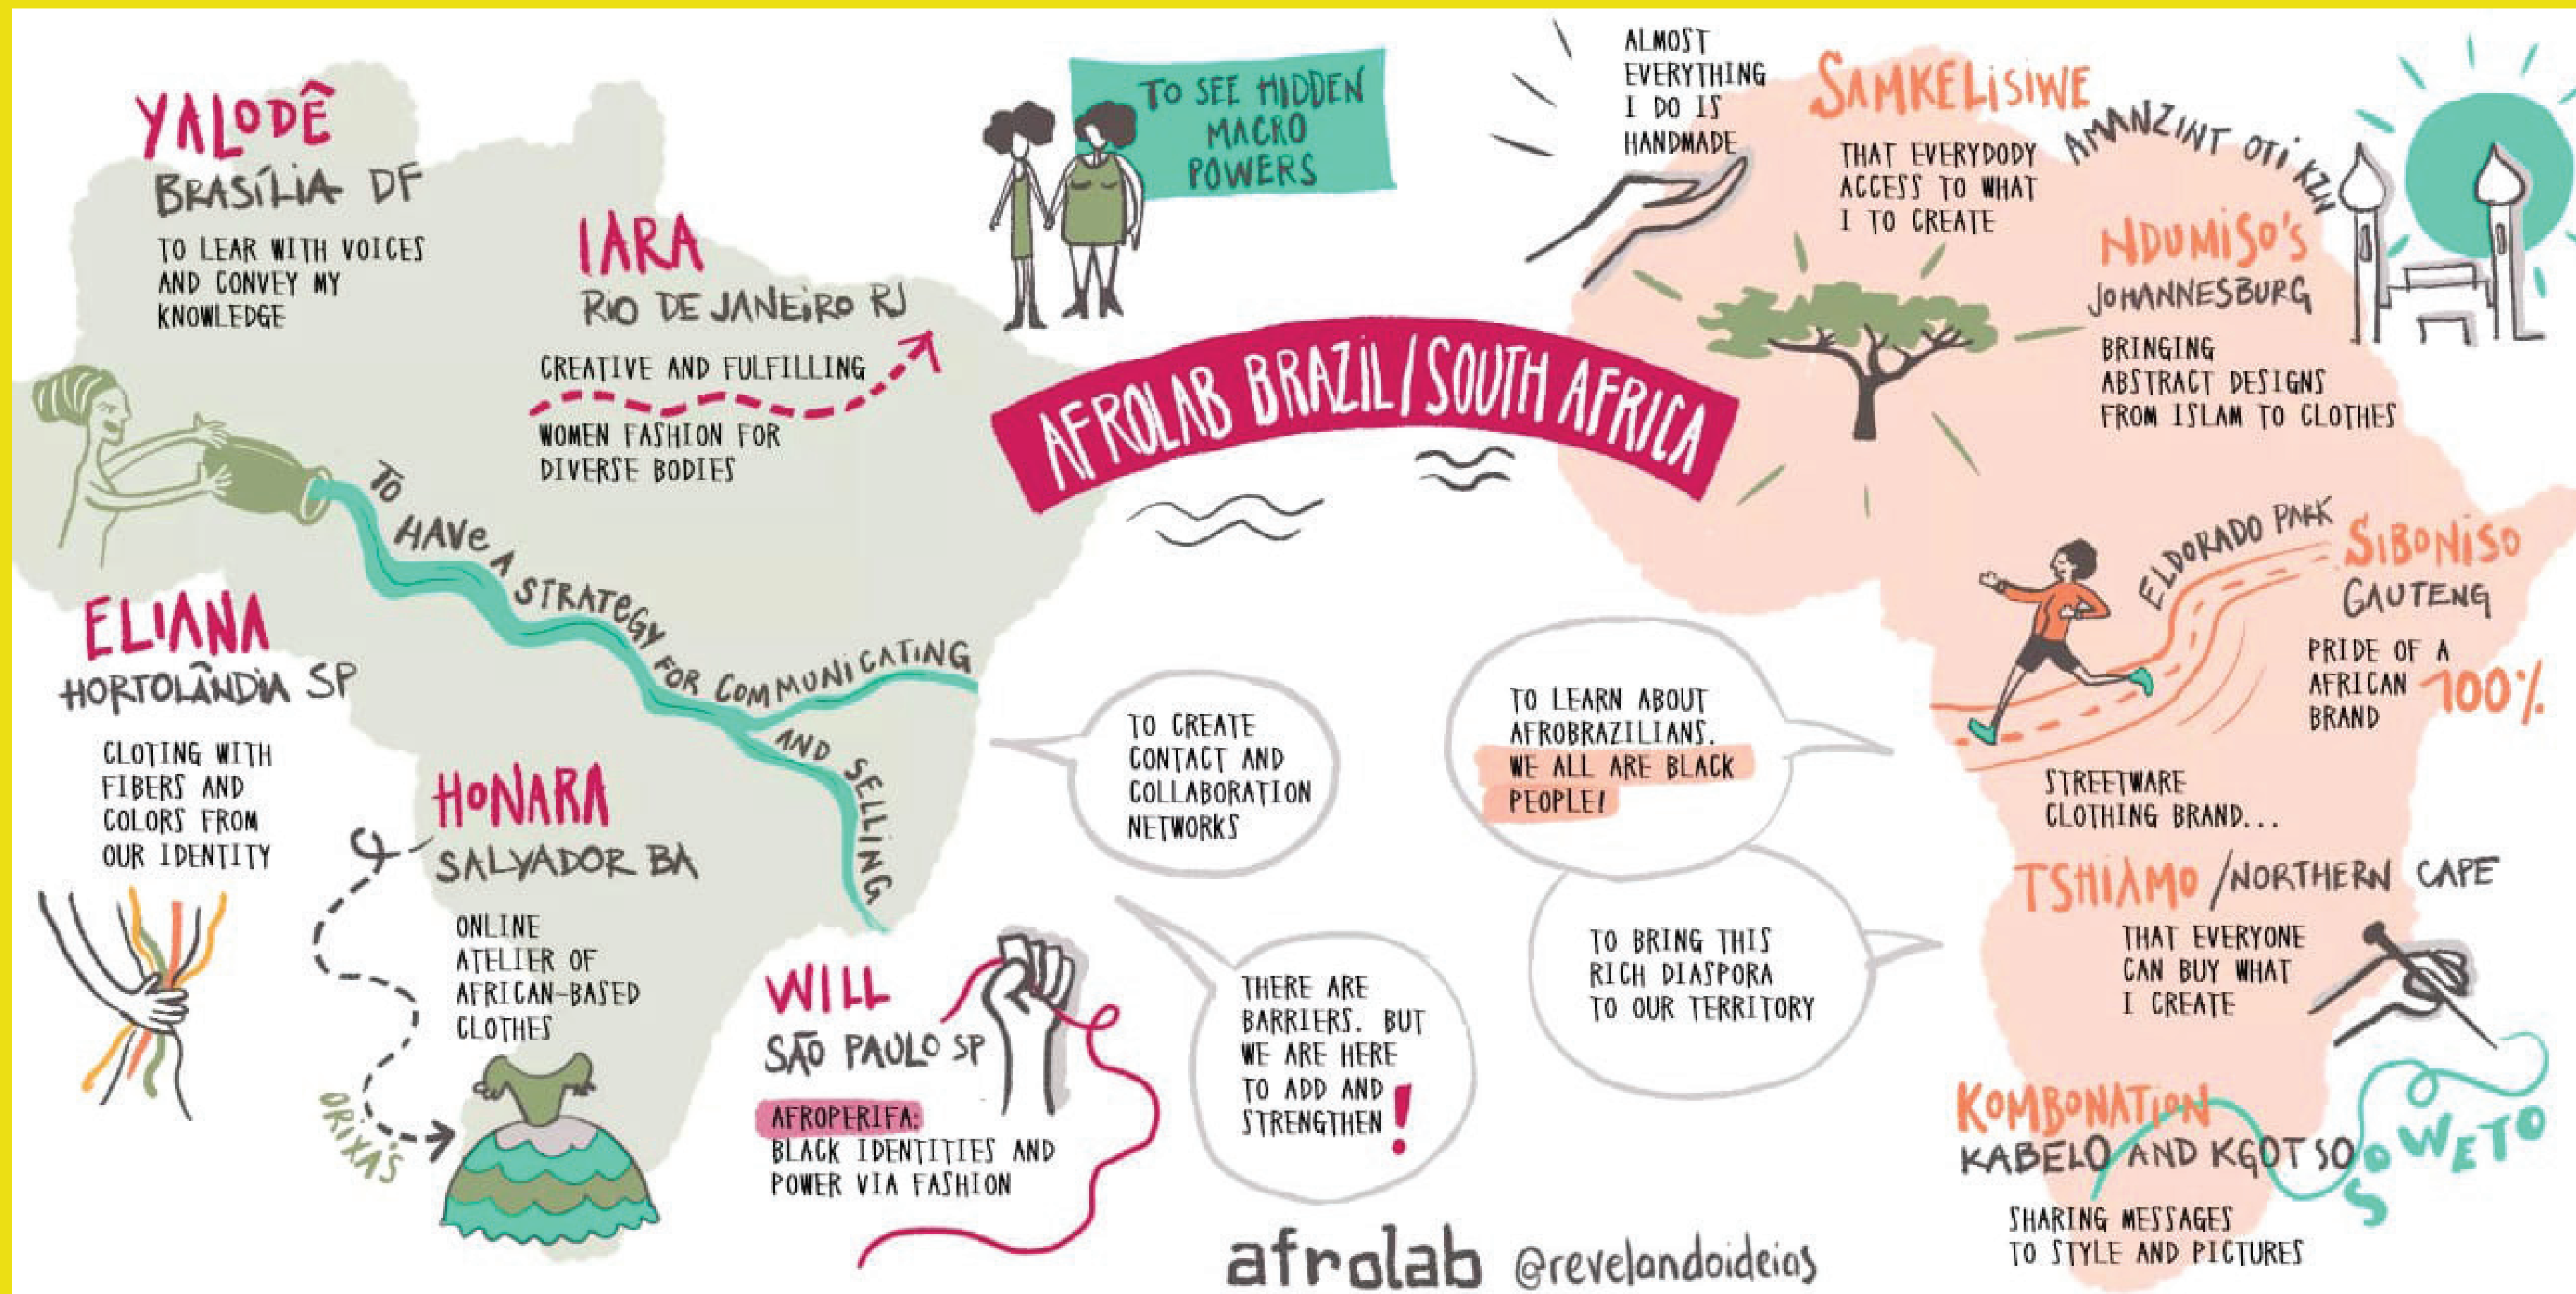 YALODÊ
BRASÍLIA DF
TO LEAR WITH VOICES
AND CONVEY MY
KNOWLEDGE
IARA
RIO DE JANEIRO RJ
CREATIVE AND FULFILLING
WOMEN FASHION FOR
DIVERSE BODIES
TO SEE HIDDEN
MACRO
POWERS
AFROLAB BRAZIL/SOUTH AFRICA
TO HAVE A STRATEGY FOR COMMUNICATING
AND SELLING
ELIANA
HORTOLÂNDIA SP
CLOTING WITH
FIBERS AND
COLORS FROM
OUR IDENTITY
HONARA
SALVADOR BA
ONLINE
ATELIER OF
AFRICAN-BASED
CLOTHES
ORIXÁS
WILL
SÃO PAULO SP
AFROPERIFA:
BLACK IDENTITIES AND
POWER VIA FASHION
TO CREATE
CONTACT AND
COLLABORATION
NETWORKS
THERE ARE
BARRIERS. BUT
WE ARE HERE
TO ADD AND
STRENGTHEN!
TO LEARN ABOUT
AFROBRAZILIANS.
WE ALL ARE BLACK
PEOPLE!
TO BRING THIS
RICH DIASPORA
TO OUR TERRITORY
ALMOST
EVERYTHING
I DO IS
HANDMADE
SAMKELISIWE
AMANZINT OTI KZN
THAT EVERYDODY
ACCESS TO WHAT
I TO CREATE
NDUMISO'S
JOHANNESBURG
BRINGING
ABSTRACT DESIGNS
FROM ISLAM TO CLOTHES
ELDORADO PARK
SIBONISO
GAUTENG
PRIDE OF A
AFRICAN 100%
BRAND
STREETWARE
CLOTHING BRAND...
TSHIAMO /NORTHERN CAPE
THAT EVERYONE
CAN BUY WHAT
I CREATE
KOMBONATION
KABELO AND KGOTSO
SOWETO
SHARING MESSAGES
TO STYLE AND PICTURES
afrolab @revelandoideias